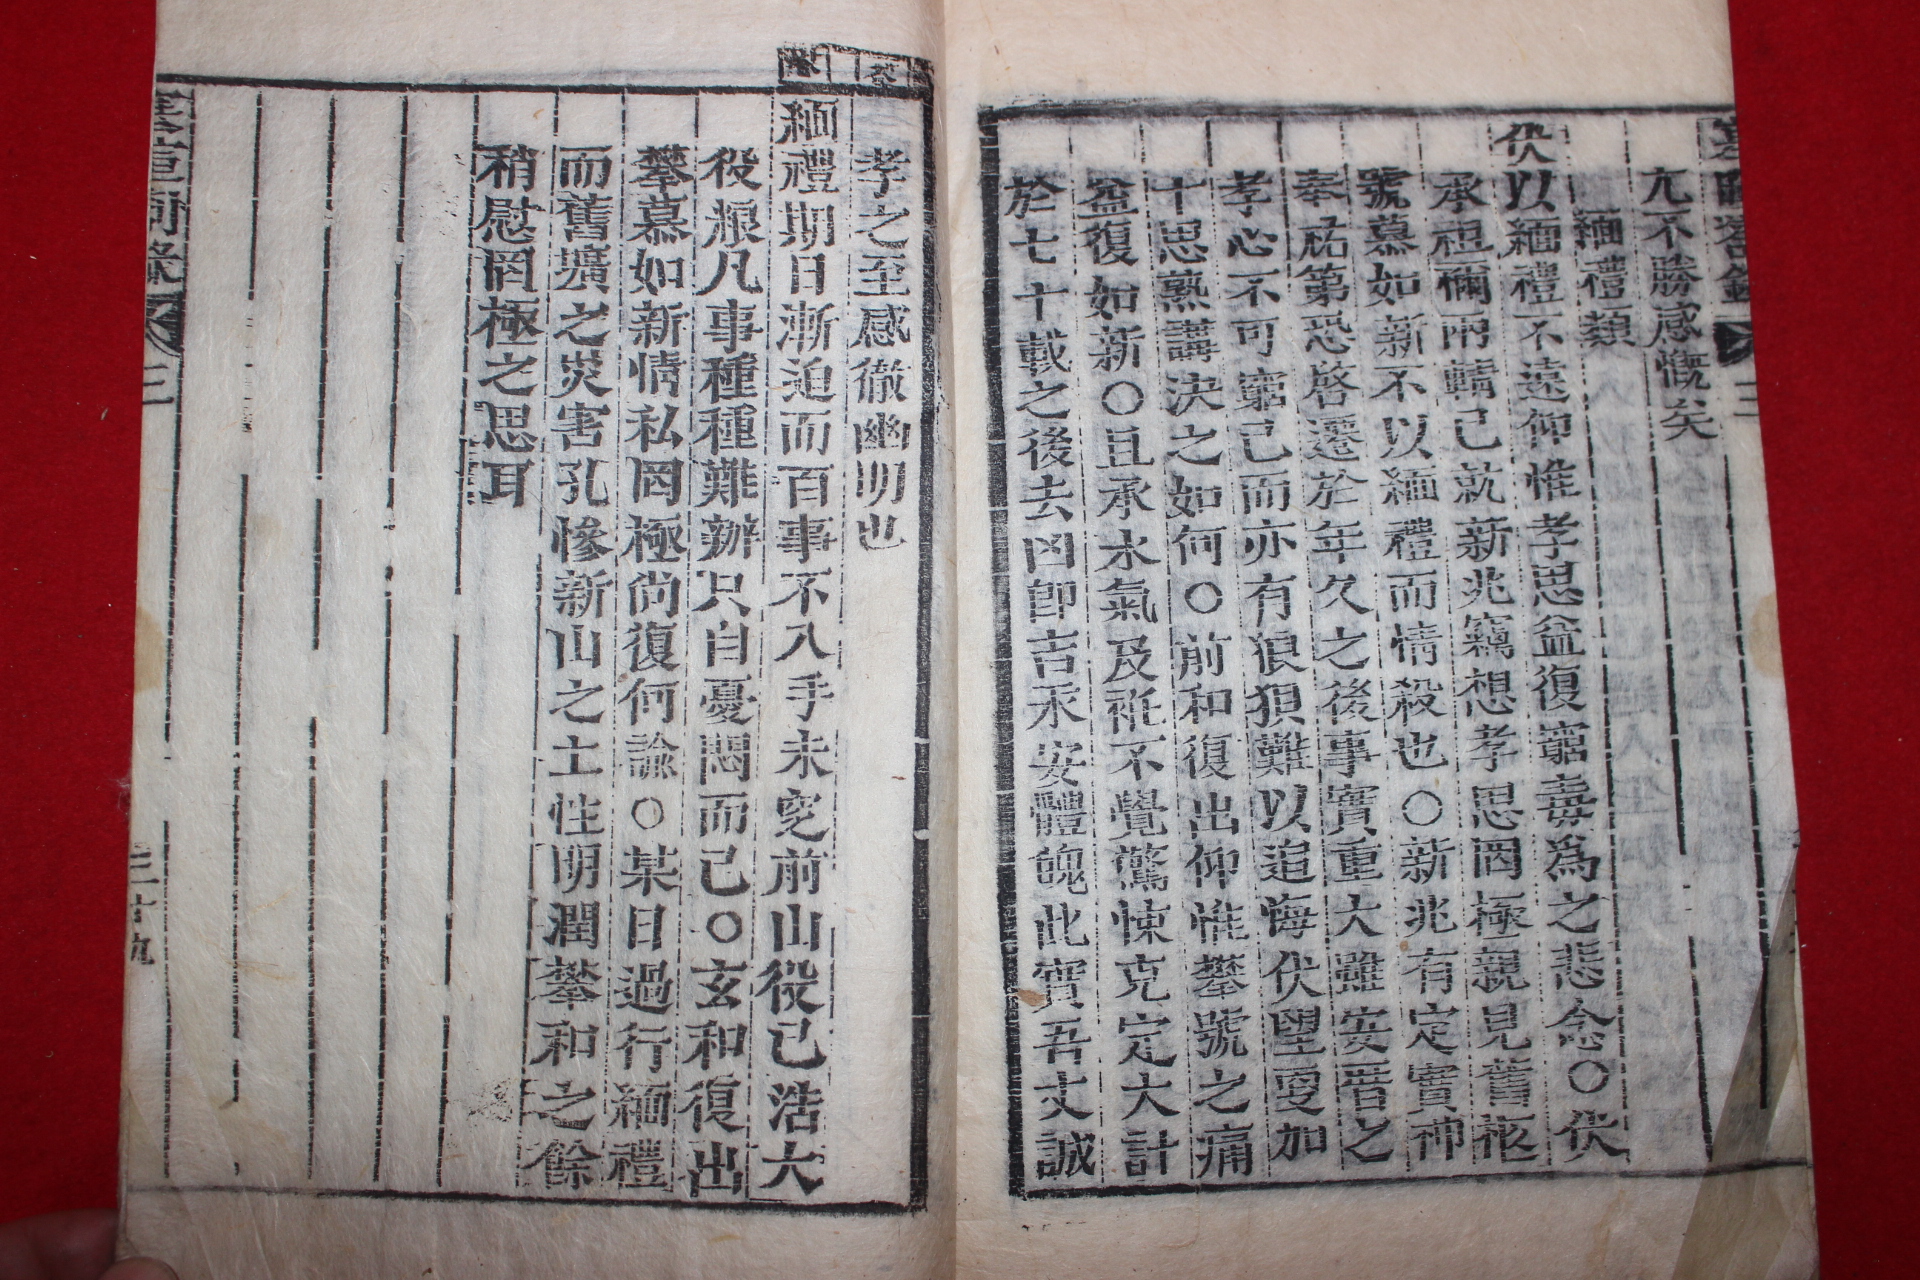 亢不勝感慨矣
緬禮類
伏以緬禮不遠仰惟孝思益復窮毒爲之悲念〇伏
承祖禰兩輤已就新兆竊想孝思罔極親見舊柩
號慕如新不以緬禮而情殺也〇新兆有定實神
奉祐第恐啓遷於年久之後事實重大雖安厝之
孝心不可窮已而亦有狼狽難以追悔伏望更加
十思熟講決之如何〇前和復出仰惟攀號之痛
益復如新〇且承水氣及祍不覺驚悚克定大計
於七十載之後去凶卽吉永安體魄此實吾丈誠
孝之至感徹幽明也
緬禮期日漸迫而百事不入手未窆前山役已浩大
役粮凡事種種難辦只自憂悶而已〇玄和復出
攀慕如新情私罔極尙復何諭〇某日過行緬禮
而舊壙之災害孔慘新山之土性明潤攀和之餘
稍慰罔極之思耳
三十九